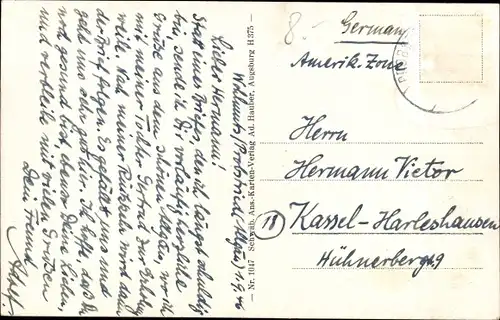 Lieber Hermann!
Statt eines Briefes, den ich längst schuldig
bin, sende ich Dir vorläufig herzliche
Grüße aus dem schönen Allgäu, wo ich
mit meiner Gertrud zur Erholung
weile. Nach meiner Rückkehr wird dann
der Brief folgen. Es gefällt uns und
geht uns sehr gut hier. Ich hoffe, daß Du
noch gesund bist, ebenso Deine Lieben,
und verbleibe mit vielen Grüßen
Dein Freund
Adolf.
— Nr. 1047 Schwäb. Ans.-Karten-Verlag Ad. Hauber, Augsburg H 375 —
8.-
Germany
Amerik. Zone
Herrn
Hermann Victor
(16) Kassel-Harleshausen
Hühnerberg 9